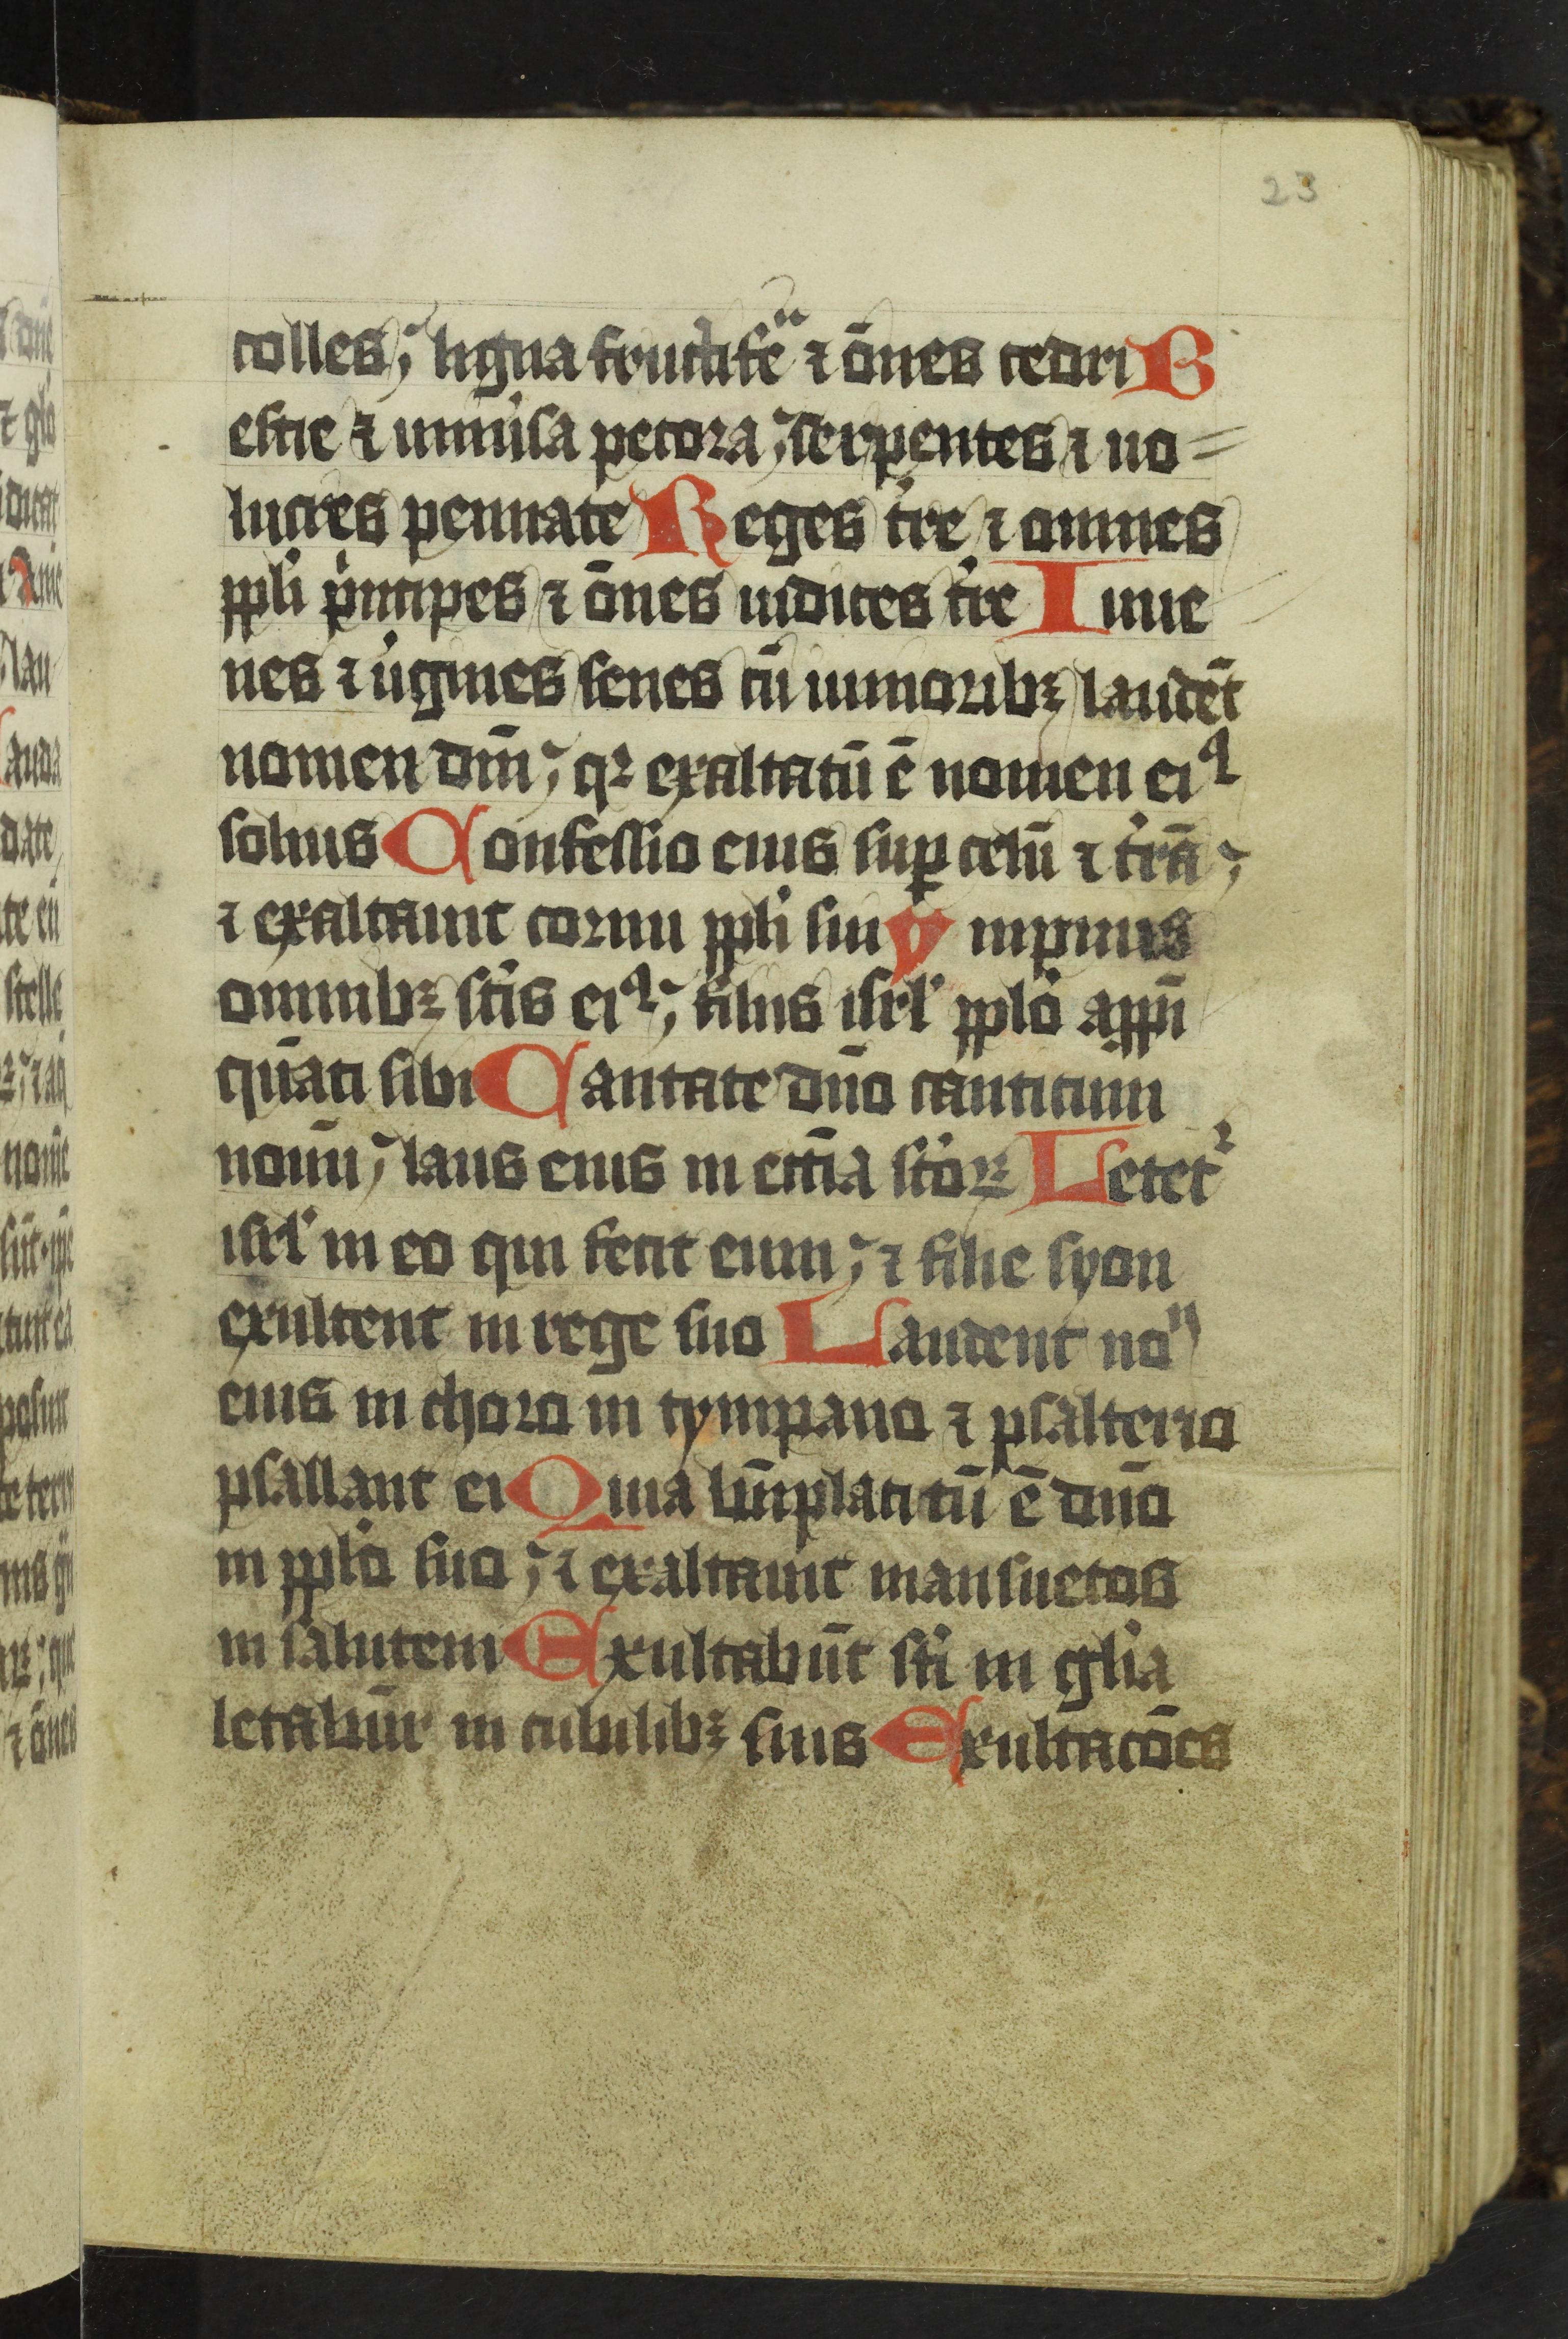 23
colles ; ligna fructifēᵃ ⁊ ōnes cedri B
estie ⁊ vniuˀsa pecora ; serpentes ⁊ uo=
lucres pennate Reges tˀre ⁊ omnes
ppli pˀncipes ⁊ ōnes iudices tˀre Iuue
nes ⁊ uˀgines senes cū iunioribꝫ laudēt
nomen dn̄i ; qꝛ exaltatū ē nomen eiꝰ
solius Confessio eius suꝑ celū ⁊ tˀrā ;
⁊ exaltauit cornu ppli sui ympnus
omnibꝫ sc̄is eiꝰ ; filiis isrl̓ pplo appˀ
qūati sibi Cantate dn̄o canticum
nouū ; laus eius in ecc̄ia sc̄oꝝ Letetᷣ
isrl̓ in eo qui fecit eum ; ⁊ filie syon
exultent in rege suo Laudent noⁿ
eius in choro in tympano ⁊ psalterio
psallant ei Quia bn̄placitū ē dn̄o
in pplo suo ; ⁊ exaltauit mansuetos
in salutem Exultabūt sc̄i in gl̓ia
letabūr in cubilibꝫ suis Exultacōēs